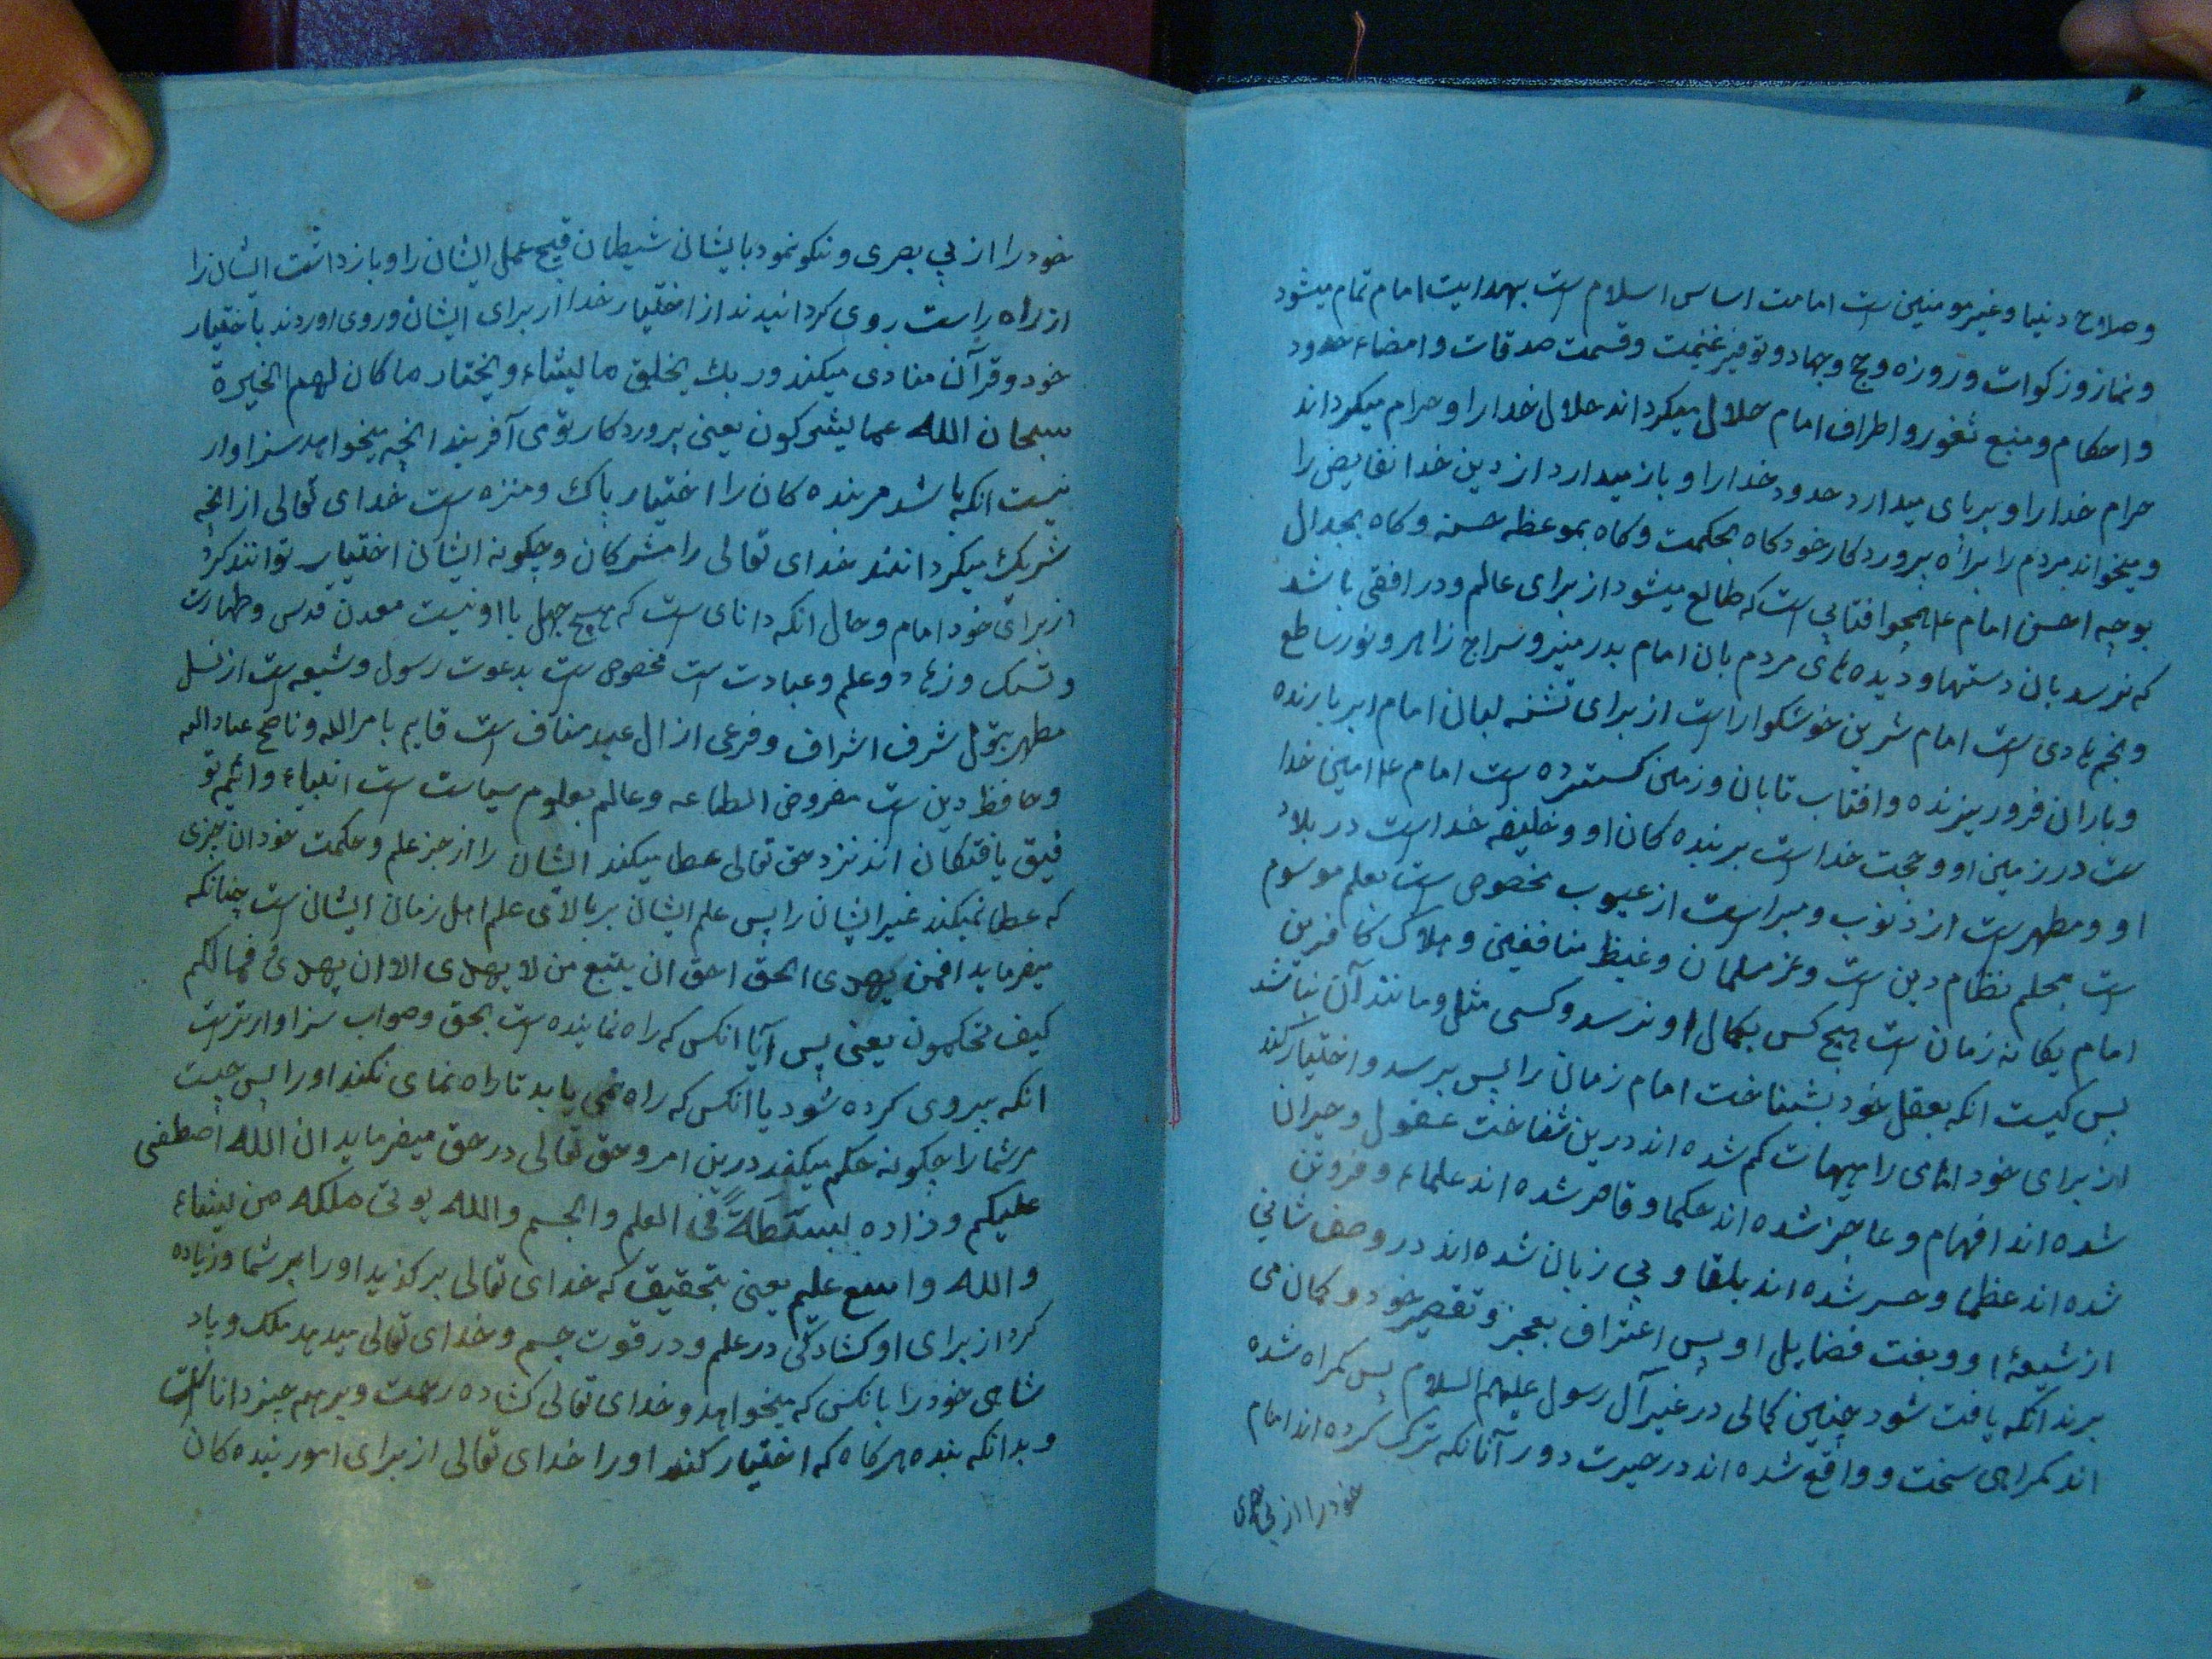 وصلاح دنیا وغیر مومنین ست امامت اساس اسلام ست بهدایت امام تمام میشود
ونماز وزکوات وروزه وحج وجهاد وتوفیر غنیمت وقسمت صدقات وامضاء حدود
واحکام ومنبع ثغور واطراف امام حلال میکرداند حلال خدارا وحرام میکرداند
حرام خدارا وبرپای میدارد حدود خدارا وباز میدارد از دین خدا نقایض را
ومیخواند مردم را براه پروردکار خود کاه بحکمت وکاه بموعظه حسنه وکاه بجدال
بوجه احسن امام ع همچو افتابی ست که طالع میشود از برای عالم ودر افقی باشد
که نرسد بان دستها ودیده های مردم بان امام بدر منیر وسراج زاهر ونور ساطع
ونجم هادی ست امام شرین خوشکوار است از برای تشنه لبان امام ابر بارنده
وباران فرو ریزنده وافتاب تابان وزمین کسترده ست امام ع امین خدا
ست در زمین او وحجت خداست بر بنده کان او وخلیفه خداست در بلاد
او ومطهر ست از ذنوب ومبرا ست از عیوب مخصوص ست بعلم موسوم
ست بحلم نظام دین ست وعز مسلمان وغیظ منافقین وهلاک کافرین
امام یکانه زمان ست هیچ کس بکمال او نرسد وکسی مثل ومانند آن نباشد
پس کیست انکه بعقل خود بشناخت امام زمان را پس برسد واختیار کند
از برای خود امامی را هیهات کم شده اند درین شناخت عقول وحیران
شده اند افهام وعاجز شده اند حکما وقاصر شده اند علماء وفروتن
شده اند عظما وحسر شده اند بلقا وبی زبان شده اند در وصف شانی
از شیعهٔ او وبغت فضایل او پس اعتراف بعجز وتقصیر خود وکمان می
برند انکه یافت شود چنین کمالی در غیر آل رسول علیهم السلام پس کمراه شده
اند کمراهی سخت وواقع شده اند در حیرت دور آنانکه ترک کرده اند امام
خود را از بی بصری
خود را از بی بصری ونکو نمود بایشانی شیطان قبیح عمل ایشان را وباز داشت ایشان را
از راه راست روی کردانیدند از اختیار خدا از برای ایشان وروی اوردند باختیار
خود وقرآن منادی میکند وربك یخلق ما یشاء ویختار ما کان لهم الخیرة
سبحان الله عما یشرکون یعنی پروردکار توی آفریند انچه میخواهد سزاوار
نیست انکه باشد مر بنده کان را اختیار پاک ومنزه ست خدای تعالی از انچه
شریک میکردانند خدای تعالی را مشرکان وچکونه ایشانی اختیار توانند کرد
از برای خود امام وحال انکه دانای ست که هیچ جهل با او نیست معدن قدس وطهارت
ونسک وزهاد وعلم وعبادت ست مخصوص ست بدعوت رسول وشیعه ست از نسل
مطهر بتول شرف اشراف وفرعی از ال عبد مناف ست قایم بامر الله وناصح عباد الله
وحافظ دین ست مفروض الطاعه وعالم بعلوم سیاست ست انبیاء وائمه تو
فیق یافتکان اند نزد حق تعالی عطا میکند ایشان را از جز علم وحکمت خود ان چیزی
که عطا نمیکند غیر ایشان را پس علم ایشان بر بالای علم اهل زمان ایشان ست چنانکه
میفرماید افمن یهدی الحق احق ان یتبع من لا یهدی الا ان یهدی فما لکم
کیف تحکمون یعنی پس آیا انکس که راه نماینده ست بحق وصواب سزاوار تر ست
انکه پیروی کرده شود یا انکس که راه نمی یابد تا راه نمای نکند اورا پس چیست
مر شمارا چکونه حکم میکند درین امر وحق تعالی در حق میفرماید ان الله اصطفی
علیکم وزاده بسطة فی العلم والجسم والله یوتی ملکه من یشاء
والله واسع علیم یعنی بتحقیق که خدای تعالی بر کذید اورا بر شما وزیاده
کرد از برای او کشادکی در علم ودر قوت جسم وخدای تعالی میدهد ملک وپاد
شاهی خود را بانکس که میخواهد وخدای تعالی کشاده رحمت وبر همه چیز داناست
وبدانکه بنده هر کاه که اختیار کند اورا خدای تعالی از برای امور بنده کان